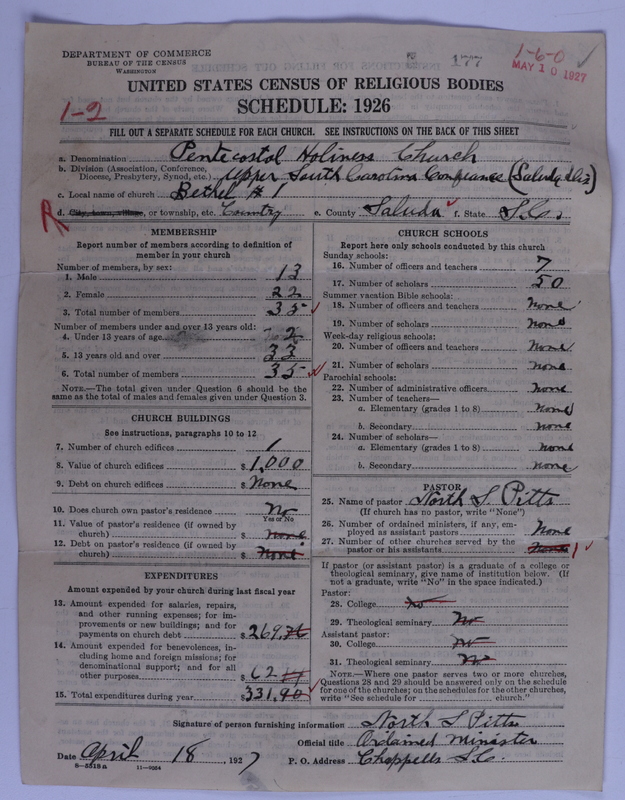 DEPARTMENT OF COMMERCE
BUREAU OF THE CENSUS
WASHINGTON
177
1-6-0
MAY 10 1927
UNITED STATES CENSUS OF RELIGIOUS BODIES
1-2
SCHEDULE: 1926
FILL OUT A SEPARATE SCHEDULE FOR EACH CHURCH. SEE INSTRUCTIONS ON THE BACK OF THIS SHEET
a. Denomination Pentecostal Holiness Church
b. Division (Association, Conference, Diocese, Presbytery, Synod, etc.) Upper South Carolina (Saluda
c. Local name of church Bethel # 1
R d. City, town, village, or township, etc. Country e. County Saluda f. State S.C.
MEMBERSHIP
Report number of members according to definition of
member in your church
Number of members, by sex:
1. Male 13
2. Female 22
3. Total number of members 35
Number of members under and over 13 years old:
4. Under 13 years of age 2
5. 13 years old and over 33
6. Total number of members 35
NOTE.—The total given under Question 6 should be
same as the total of males and females given under Question 3.
CHURCH BUILDINGS
See instructions, paragraphs 10 to 12
7. Number of church edifices 1
8. Value of church edifices $ 1,000
9. Debt on church edifices $ None
10. Does church own pastor's residence No
Yes or No
11. Value of pastor's residence (if owned by
church) $ none
12. Debt on pastor's residence (if owned by
church) $ None
EXPENDITURES
Amount expended by your church during last fiscal year
13. Amount expended for salaries, repairs,
and other running expenses; for im-
provements or new buildings; and for
payments on church debt $ 269.
14. Amount expended for benevolences, in-
cluding home and foreign missions; for
denominational support; and for all
other purposes $ 62
15. Total expenditures during year $ 331.90
CHURCH SCHOOLS
Report here only schools conducted by this church
Sunday schools:
16. Number of officers and teachers 7
17. Number of scholars 50
Summer vacation Bible schools:
18. Number of officers and teachers none
19. Number of scholars none
Week-day religious schools:
20. Number of officers and teachers none
21. Number of scholars none
Parochial schools:
22. Number of administrative officers none
23. Number of teachers—
a. Elementary (grades 1 to 8) none
b. Secondary none
24. Number of scholars—
a. Elementary (grades 1 to 8) none
b. Secondary none
PASTOR
25. Name of pastor North S. Pitts
(If church has no pastor, write "None")
26. Number of ordained ministers, if any, em-
ployed as assistant pastors None
27. Number of other churches served by the
pastor or his assistants None 1
If pastor (or assistant pastor) is a graduate of a college or
theological seminary, give name of institution below. (If
not a graduate, write "No" in the space indicated.)
Pastor:
28. College No
29. Theological seminary No
Assistant pastor:
30. College No
31. Theological seminary No
NOTE.—Where one pastor serves two or more churches,
Questions 28 and 29 should be answered only on the schedule
for one of the churches; on the schedules for the other churches,
write "See schedule for church."
Signature of person furnishing information North S Pitts
Official title Ordained Minister
Date April 18, 1927
P. O. Address Chappells S.C.
8-5518a 11-9084